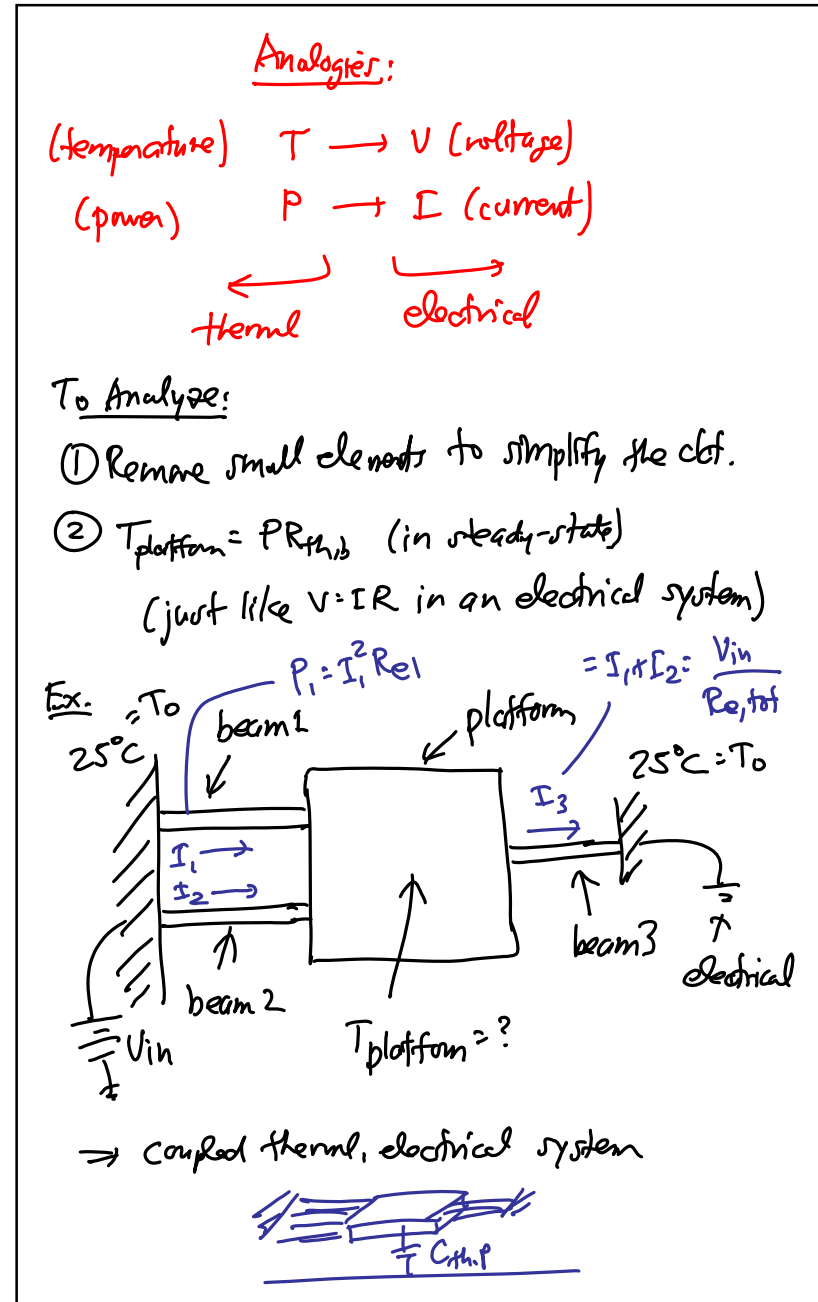 Analogies:
(temperature) T → V (voltage)
(power) P → I (current)
thermal electrical
To Analyze:
① Remove small elements to simplify the ckt.
② Tplatform = PRth,b (in steady-state)
(just like V=IR in an electrical system)
P₁ = I₁²Re1 = I₁+I₂ = Vin/Re,tot
Ex. 25°C = T₀ beam1 platform 25°C = T₀
I₁ → I₃
I₂ →
beam3
beam2 electrical
Vin Tplatform = ?
⇒ coupled thermal, electrical system
Cth,p